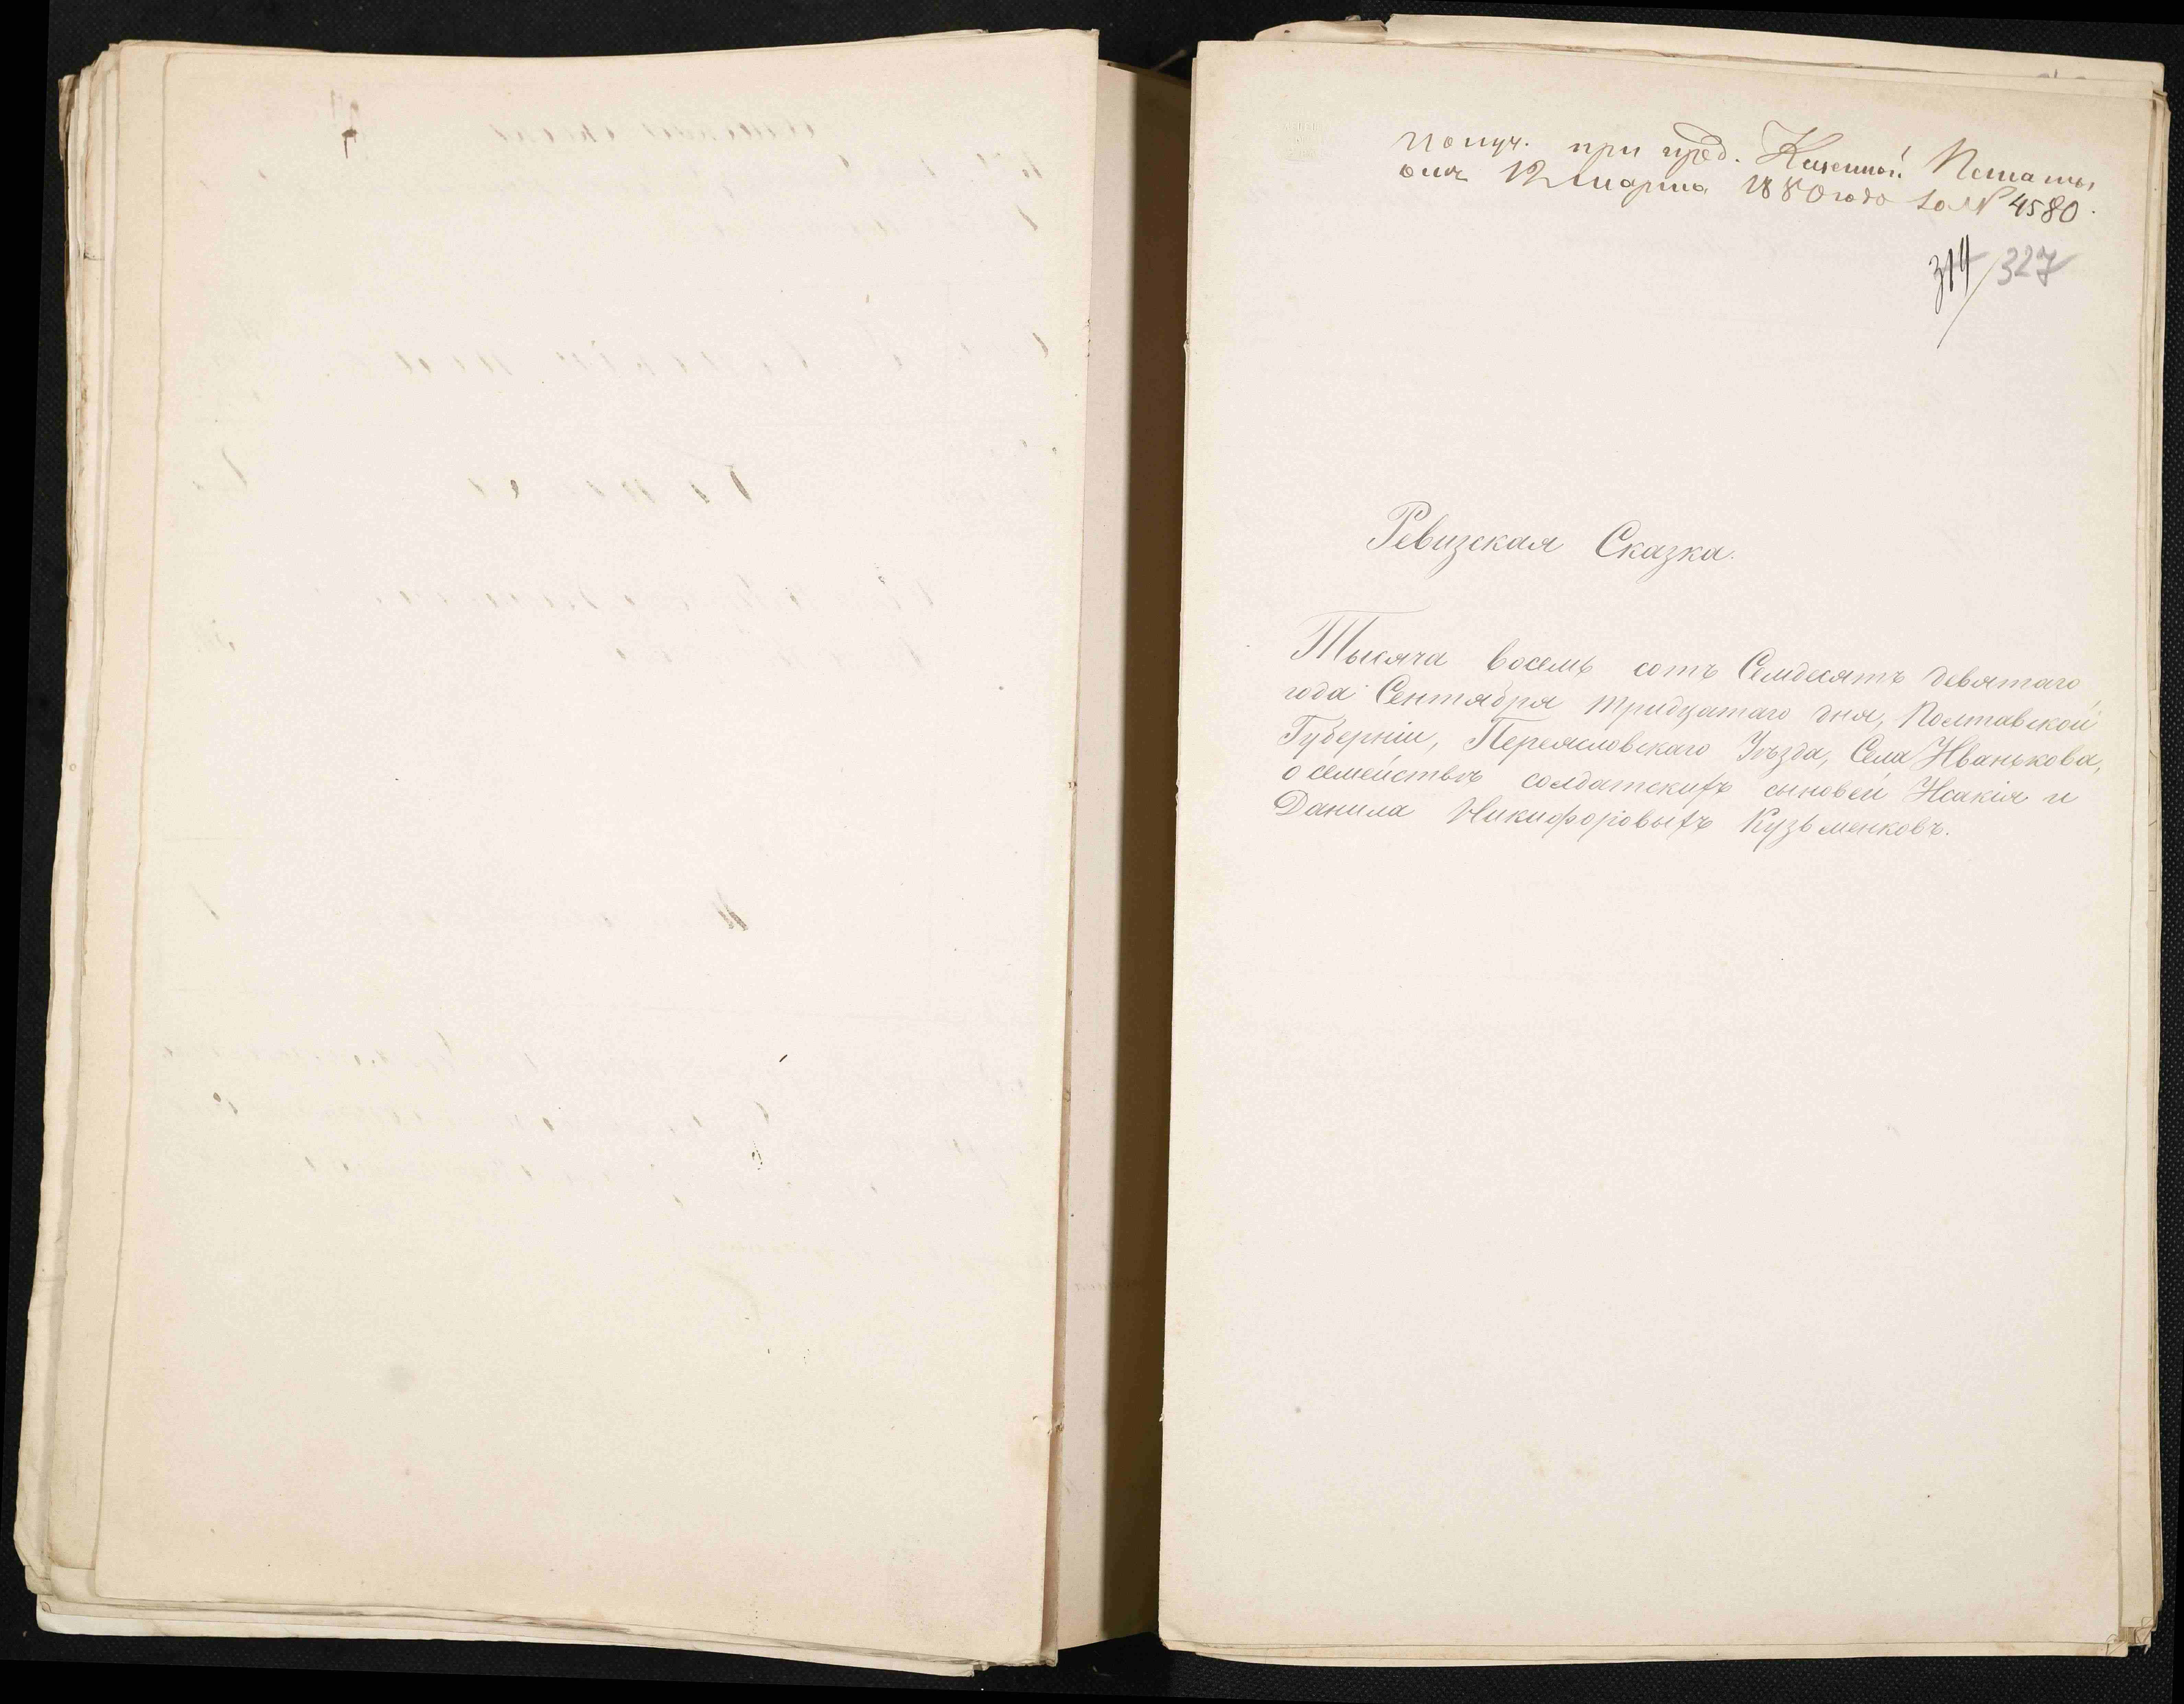 Получ. при пред. Казенной Палаты
отъ 12 марта 1880 года за № 4580.
314/327
Ревизская Сказка.
Тысяча восемь сотъ Семдесятъ девятаго
года Сентября тридцатаго дня, Полтавской
Губерніи, Переясловскаго Уѣзда, Села Иванькова,
о семействѣ солдатскихъ сыновей Исакія и
Данила Никифоровыхъ Кузьменковъ.